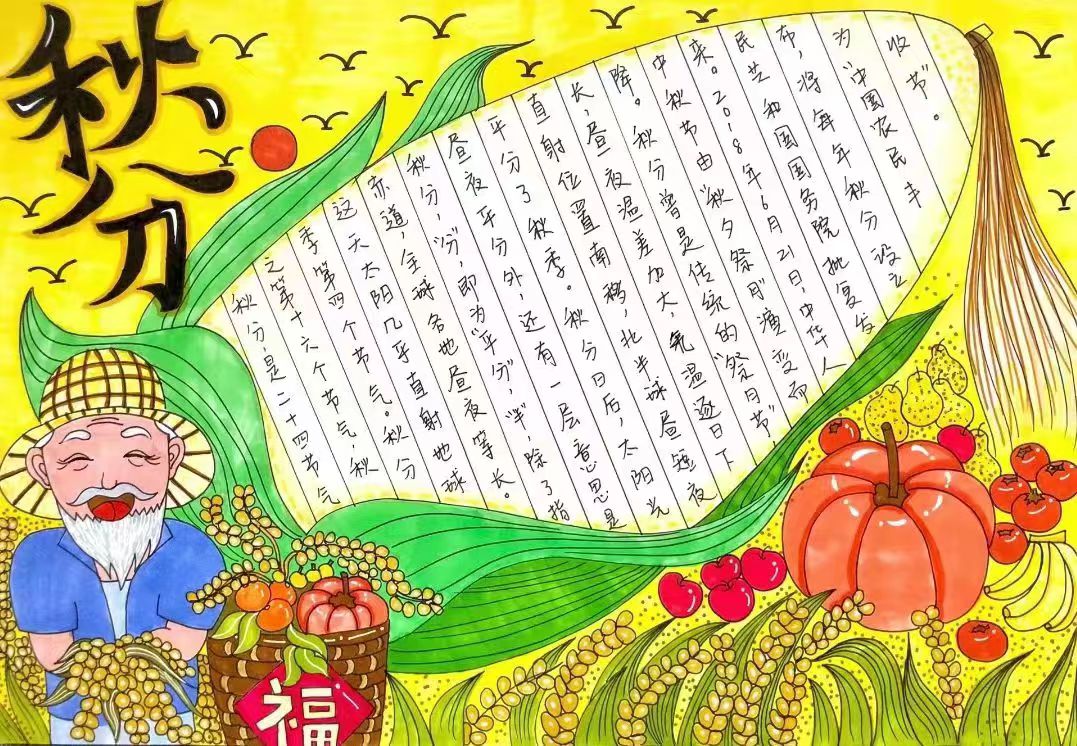 秋分
秋分,是二十四节气
之第十六个节气,秋
季第四个节气。秋分
这天太阳几乎直射地球
赤道,全球各地昼夜等长。
秋分,“分”即为“平分”、“半”,除了指
昼夜平分外,还有一层意思是
平分了秋季。秋分日后,太阳光
直射位置南移,北半球昼短夜
长,昼夜温差加大,气温逐日下
降。秋分曾是传统的“祭日节”,
中秋节由“秋夕祭月”演变而
来。2018年6月21日,中华人
民共和国国务院批复发
布,将每年秋分设立
为“中国农民丰
收节”。
福